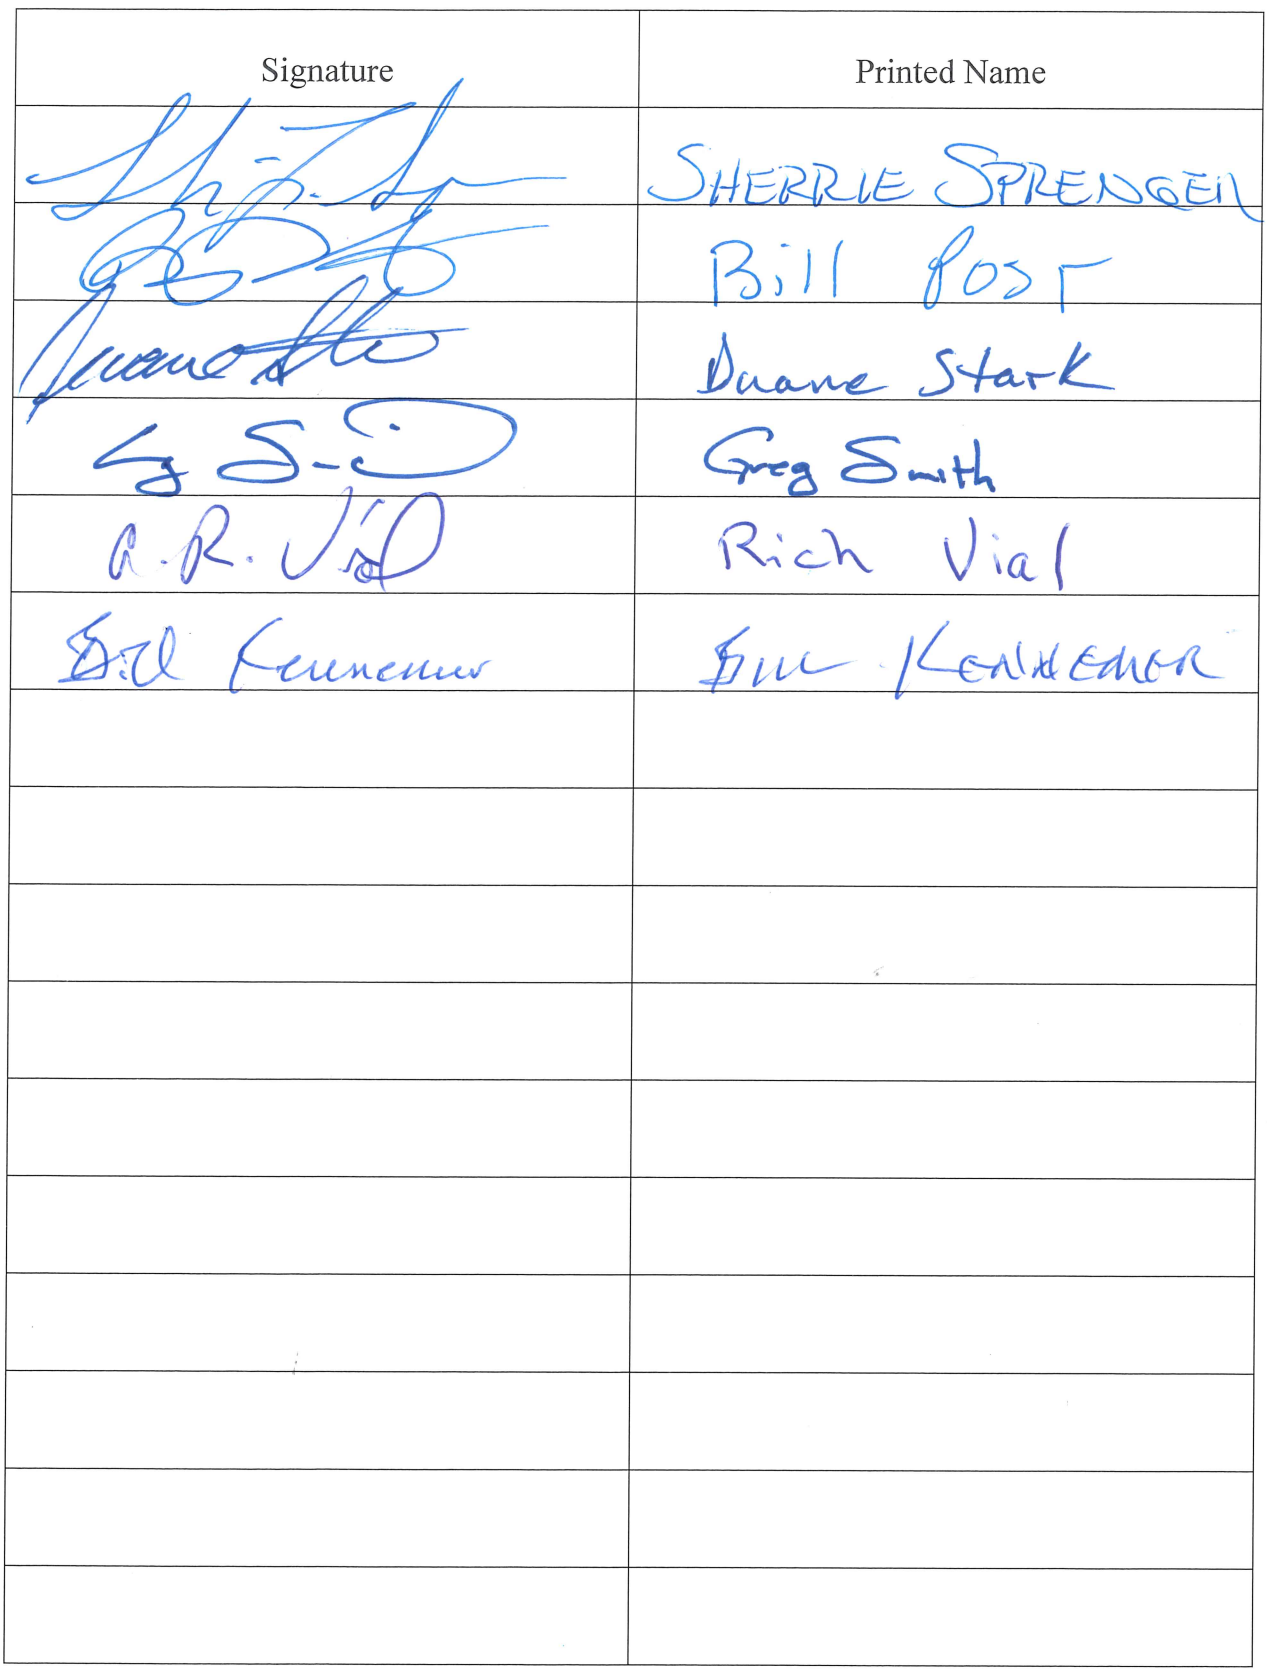 Signature Printed Name
SHERRIE SPRENGER
Bill Post
Duane Stark
Greg Smith
A. R. Vial Rich Vial
Bill Kennemer Bill KENNEMER